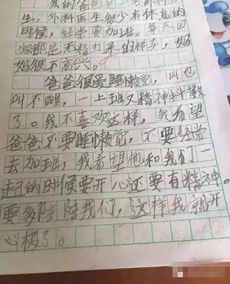 我的爸爸是
生,外科医生很少有休息的
时候,经常要加班。每天回
都是无精打采的样子,妈
妈很不高兴。
爸爸很爱睡懒觉,叫也
叫不醒,一上班又精神抖擞
了。我不喜欢这样,我希望
爸爸不要睡懒觉,不要经常
去加班,我希望他和我们一
起的时候要开心还要有精神
要多陪陪我们,这样我就开
心极了。